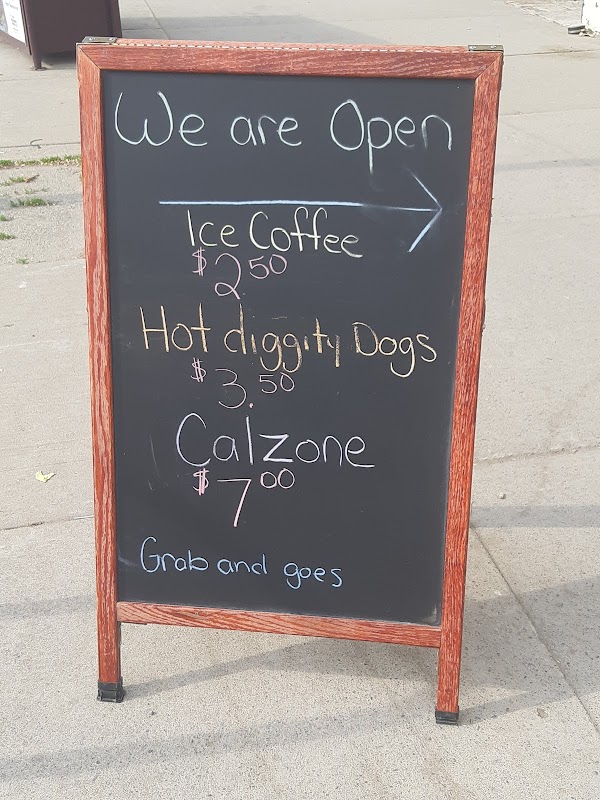 We are Open
Ice Coffee
$2.50
Hot diggity Dogs
$3.50
Calzone
$7.00
Grab and goes